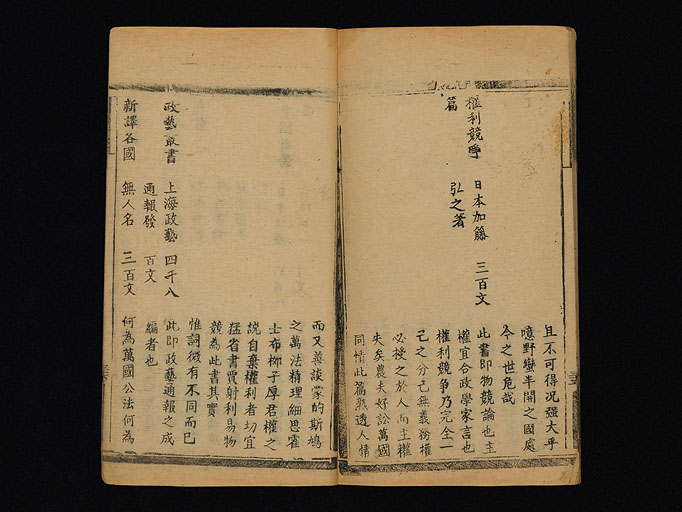 且不可得况强大乎
噫野蠻半開之國處
今之世危哉
權利競爭
篇
日本加藤
弘之著
三百文
此書即物競論也主
權宜合政學家言也
權利競爭乃完全一
己之分己無義務權
必授之於人而主權
失矣農夫好訟萬國
同情此篇熟透人情
而又善談蒙的斯鳩
之萬法精理細思霍
士布柳子厚君權之
說自棄權利者切宜
猛省書賈射利易物
競為此書其實
惟詞微有不同而已
政藝叢書
上海政藝
通報發
四千八
百文
此即政藝通報之成
編者也
新譯各國
無人名
三百文
何為萬國公法何為